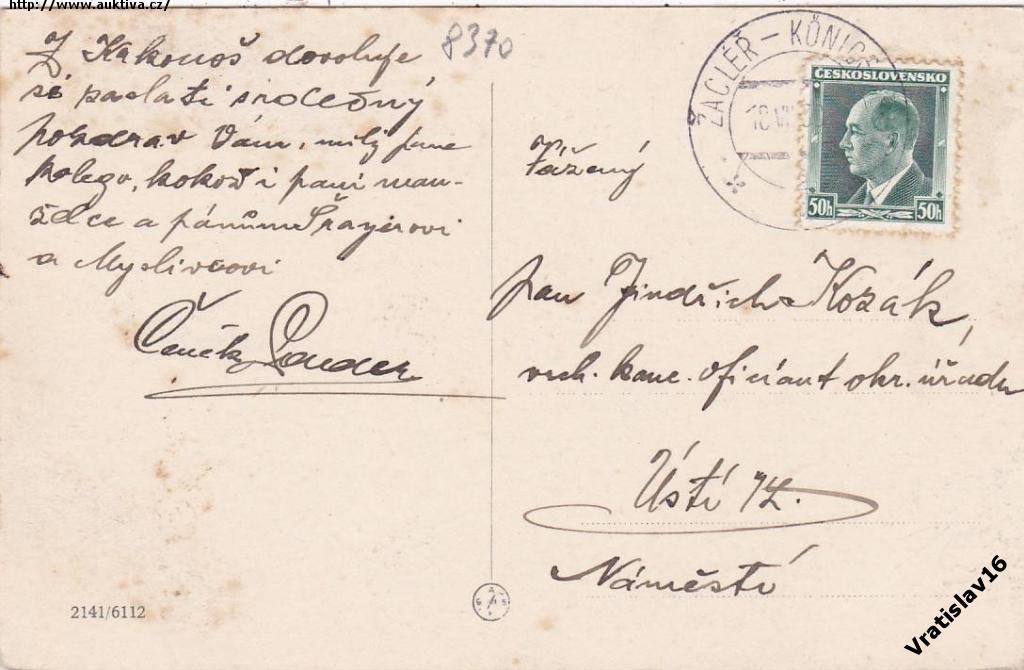 http://www.auktiva.cz/
8370
Z Krkonoš dovoluje
si zaslati srdečný
pozdrav Vám, milý pane
kolego, jakož i paní man-
želce a pánům Šrayerovi
a Myslivcovi
Čeněk
ŽACLÉŘ – KÖNIGS
18 VII
ČESKOSLOVENSKO
50h 50h
Vážený
pan Jindřich Kozák,
vrch. kanc. oficiant okr. úřadu
Ústí n/L.
Náměstí
2141/6112
Vratislav16